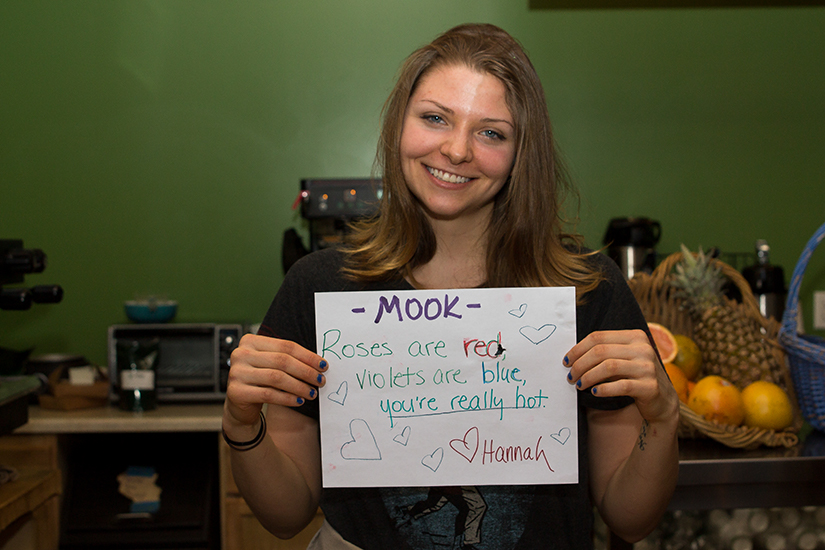 - MOOK -
Roses are red,
violets are blue,
you're really hot.
Hannah